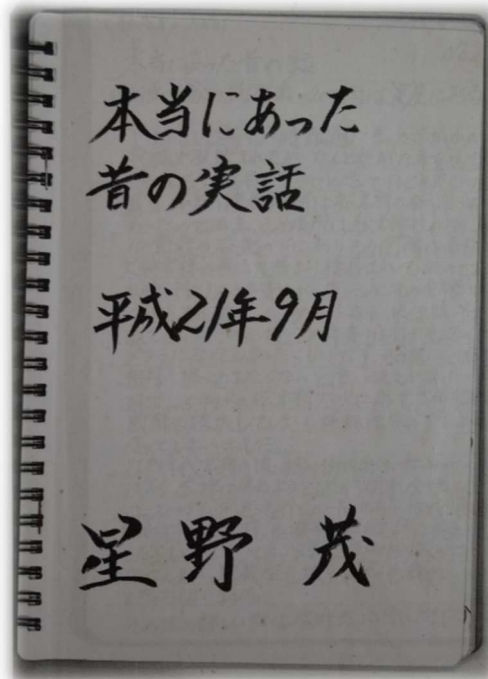 本当にあった
昔の実話
平成21年9月
星野 茂